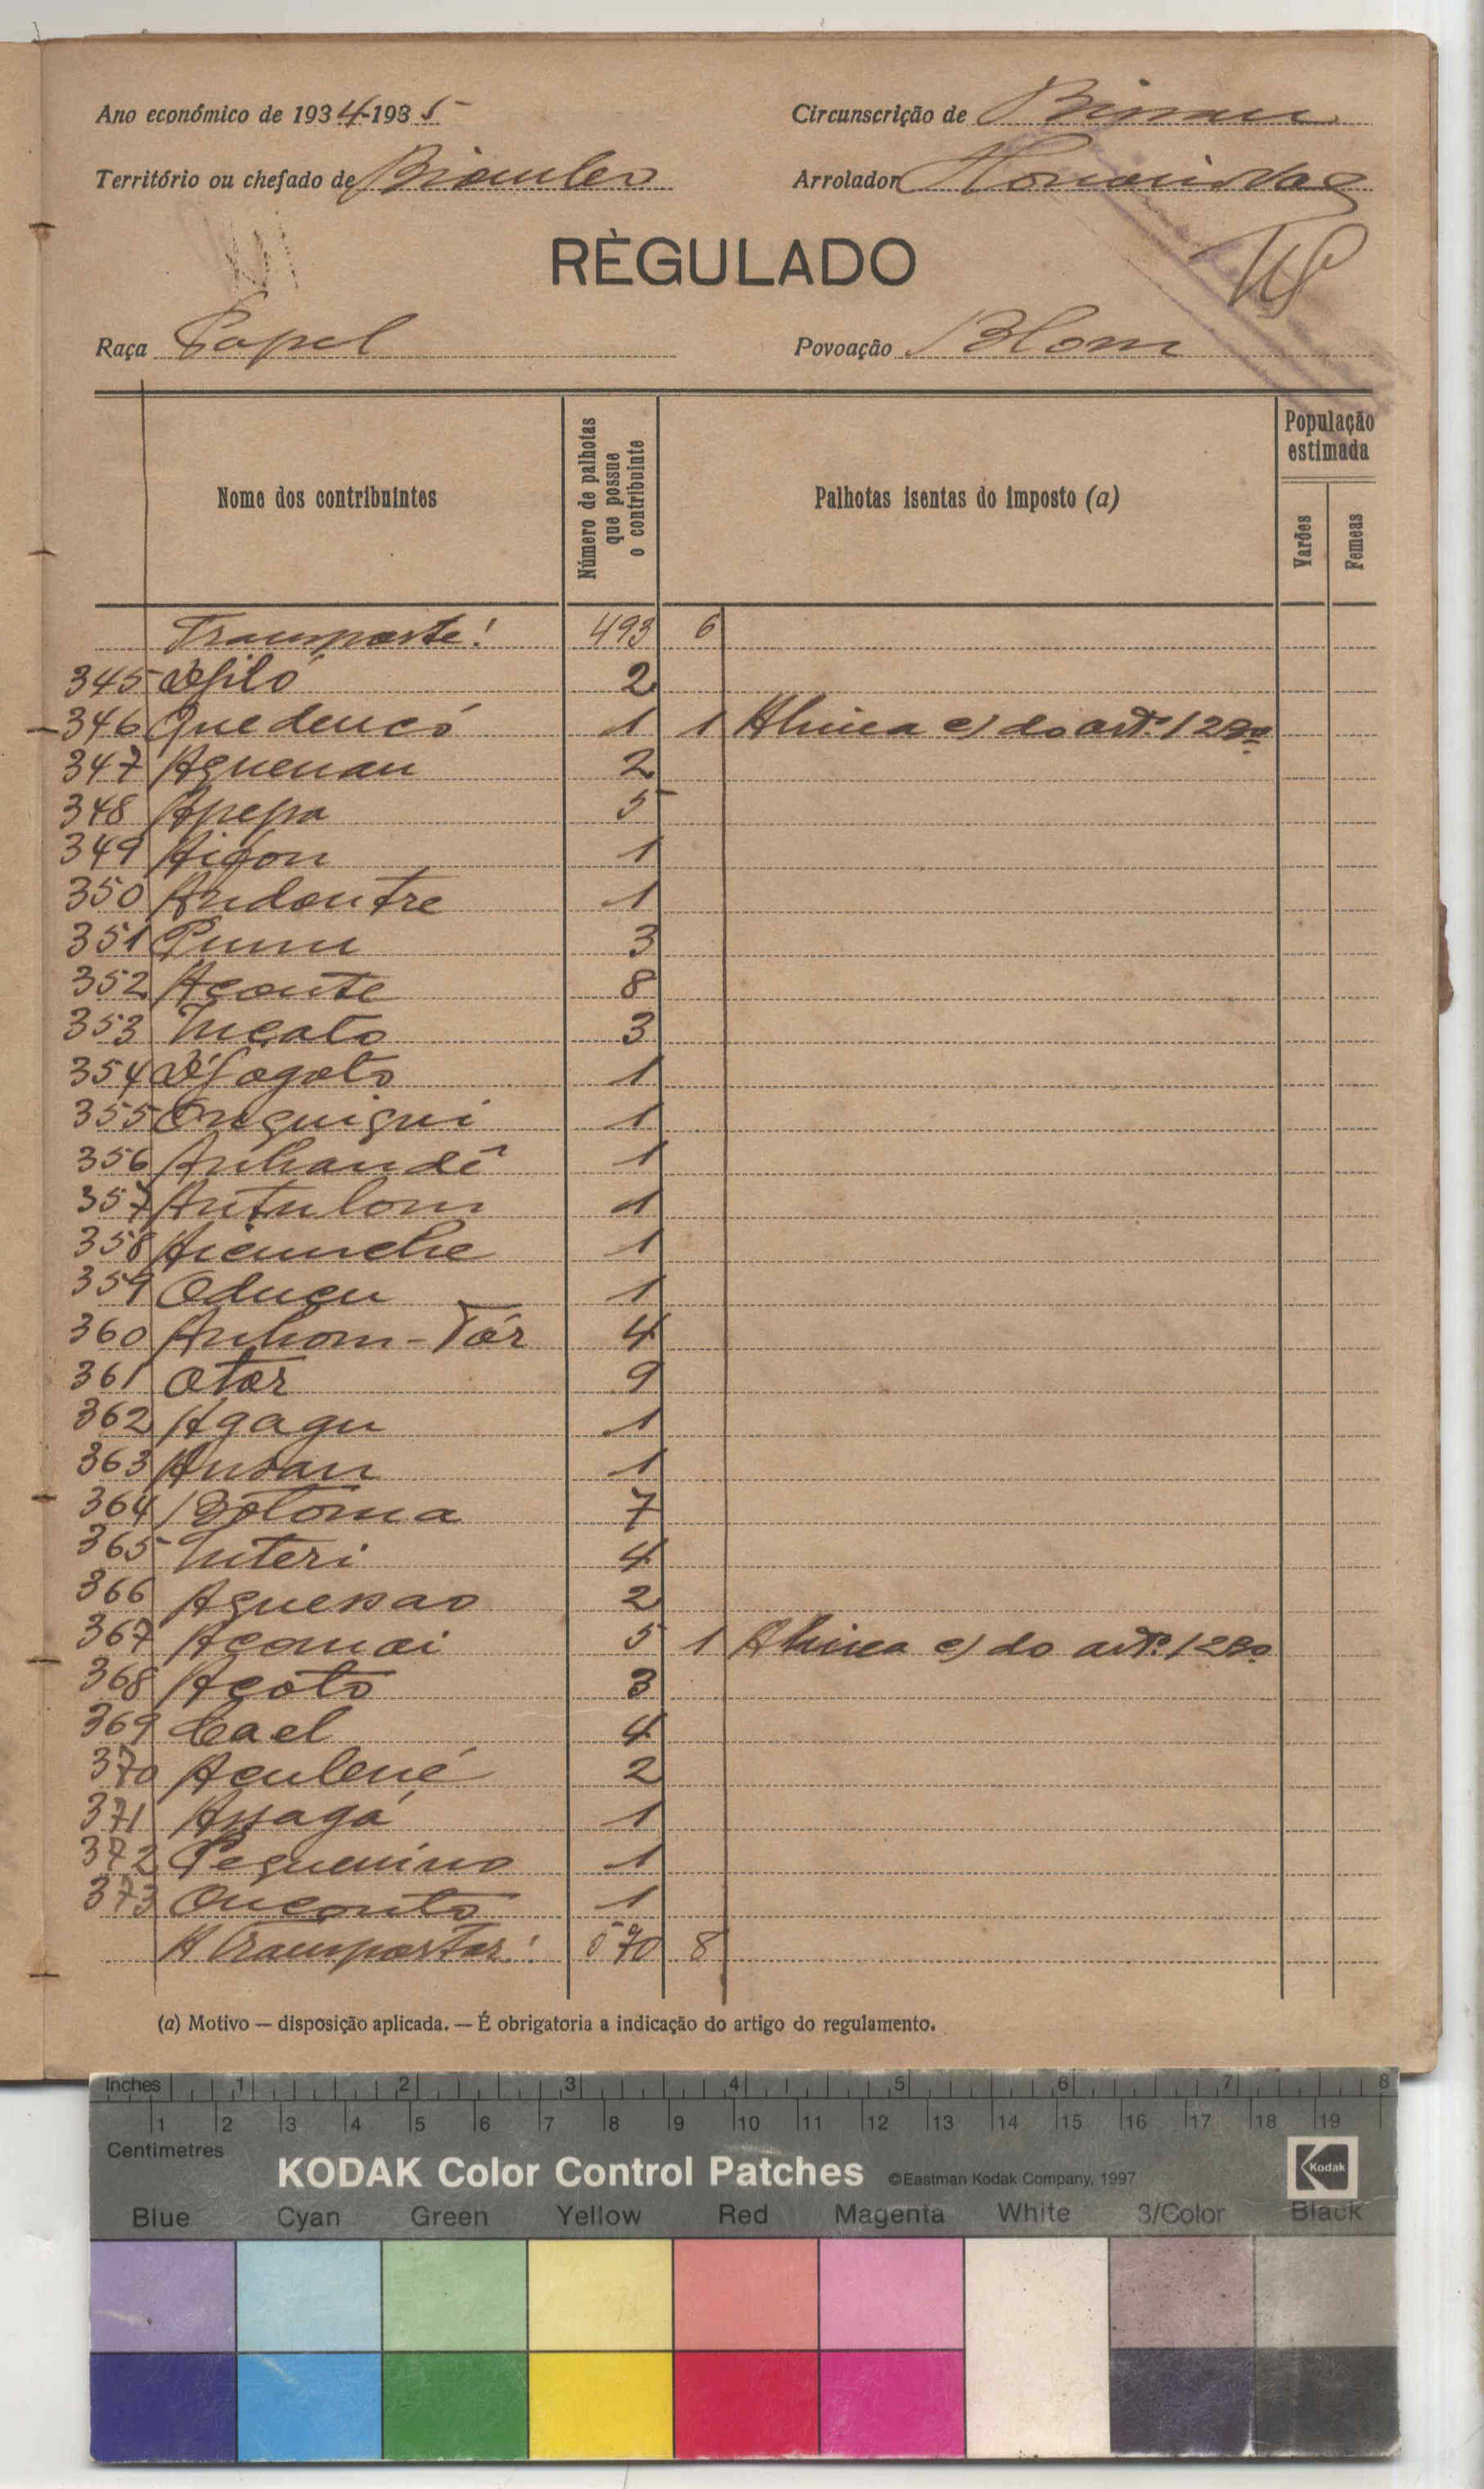 Ano económico de 1934-1935
Circunscrição de Bissau
Território ou chefado de Biombo
Arrolador
RÈGULADO
Raça Papel
Povoação Blom
Nome dos contribuintes
Número de palhotas que possue o contribuinte
Palhotas isentas do imposto (a)
População estimada
Varões
Femeas
Transporte! 493 6
345 2
346 Quedencó 1 1 Alinea c) do artº. 128º
347 Aguenau 2
348 Apepa 5
349 1
350 Andontre 1
351 3
352 Açonte 8
353 Incato 3
354 1
355 Onguigui 1
356 Anhandê 1
357 Antulom 1
358 1
359 Oduçu 1
360 Anhom-Tór 4
361 Otor 9
362 Agagu 1
363 1
364 Botoma 7
365 Interi 4
366 2
367 5 1 Alinea c) do artº. 128º
368 Açoto 3
369 Cael 4
370 Aculené 2
371 Assagá 1
372 Pequenino 1
373 Onconto 1
A Transportar! 570 8
(a) Motivo — disposição aplicada. — É obrigatoria a indicação do artigo do regulamento.
Inches 1 2 3 4 5 6 7 8
1 2 3 4 5 6 7 8 9 10 11 12 13 14 15 16 17 18 19
Centimetres
KODAK Color Control Patches ©Eastman Kodak Company, 1997 Kodak
Blue Cyan Green Yellow Red Magenta White 3/Color Black